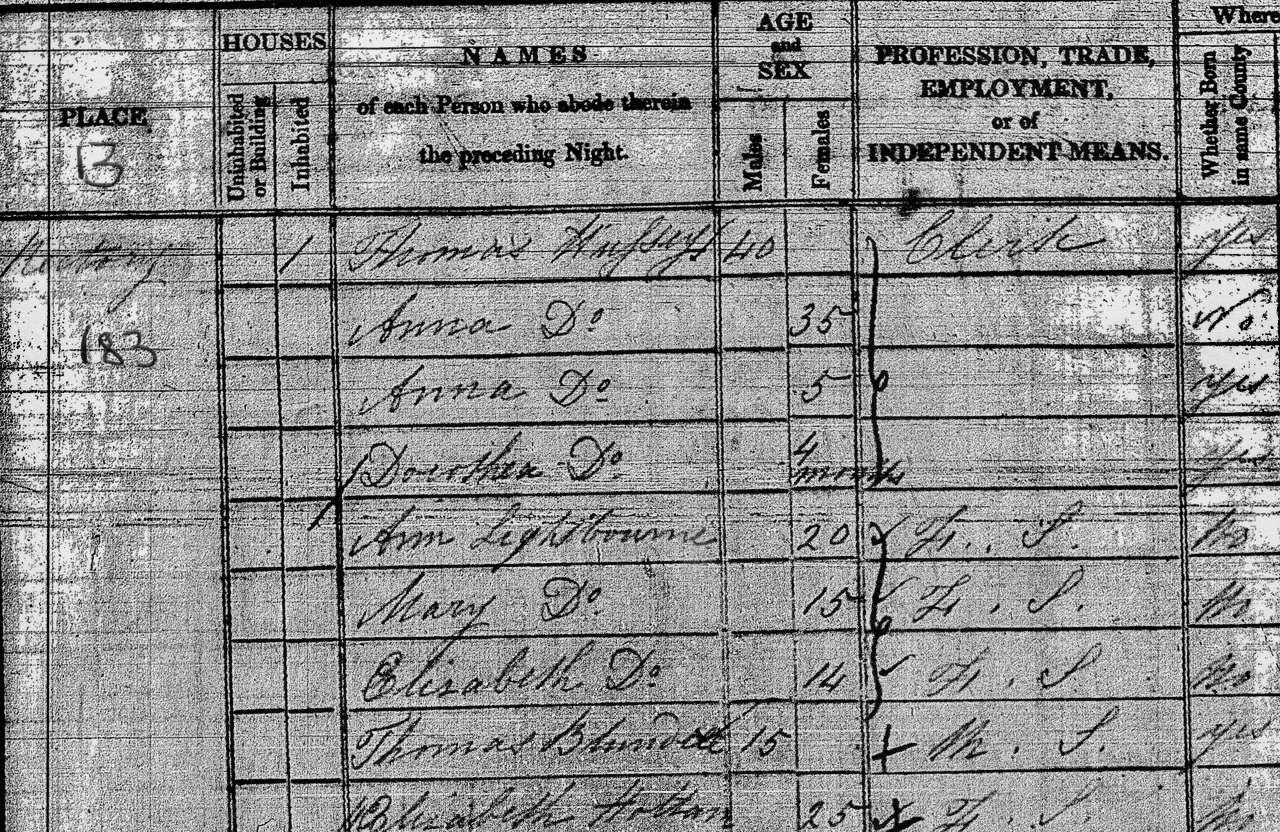 HOUSES
AGE and SEX
Where
NAMES
of each Person who abode therein
the preceding Night.
PROFESSION, TRADE,
EMPLOYMENT,
or of
INDEPENDENT MEANS.
PLACE
Uninhabited or Building
Inhabited
Males
Females
Whether Born in same County
13
Rectory 1 Thomas Hussey 40 Clerk yes
Anna Do 35 No
183
Anna Do 5 yes
Dorothea Do 4 months yes
Ann Lightbourne 20 F. S. No
Mary Do 15 F. S. No
Elizabeth Do 14 F. S. No
Thomas Blundell 15 M. S. yes
Elizabeth 25 F. S. No